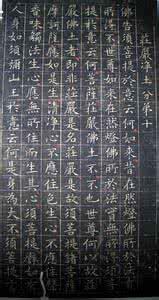 莊嚴淨土分第十
佛告須菩提於意云何如來昔在然燈佛所於法有
所得不世尊如來在然燈佛所於法實無所得須
菩提於意云何菩薩莊嚴佛土不不也世尊何以故莊
嚴佛土者即非莊嚴是名莊嚴是故須菩提諸菩薩
摩訶薩應如是生清淨心不應住色生心不應住聲
香味觸法生心應無所住而生其心須菩提譬如有
人身如須彌山王於意云何是身為大不須菩提